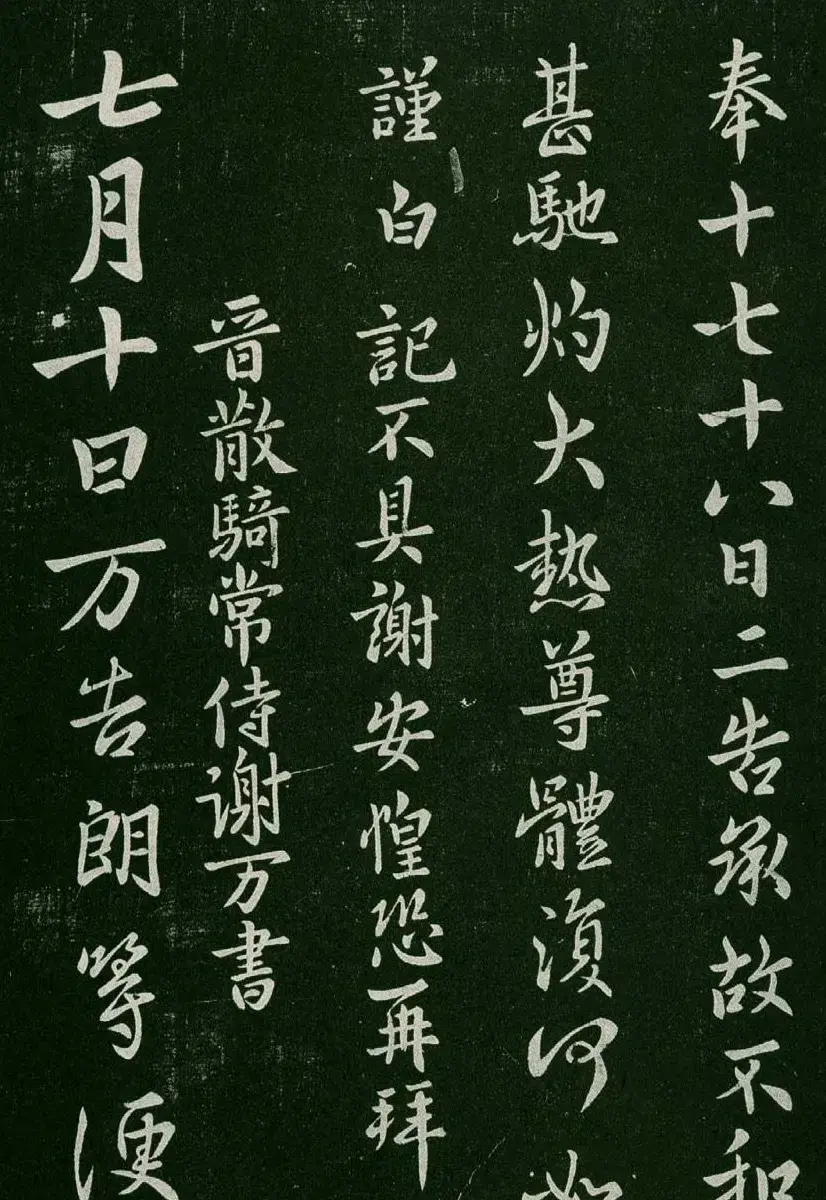 奉十七十八日二告承故不和
甚馳灼大熱尊體復何如
謹白記不具謝安惶恐再拜
晉散騎常侍謝万書
七月十日万告朗等便